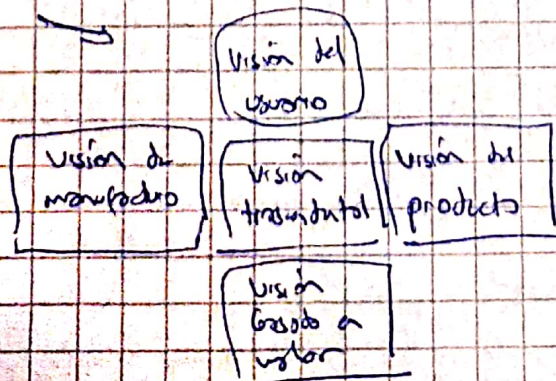 Visión del
usuario
Visión de
manufactura
Visión
trasendental
Visión del
producto
Visión
basada en
valor